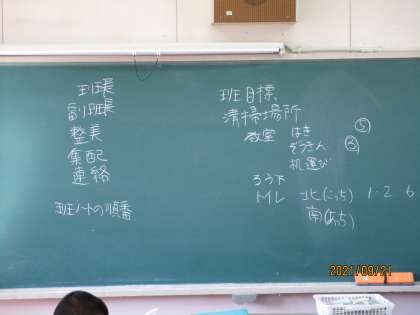 班長
副班長
整美
集配
連絡
班ノートの順番
班目標
清掃場所
教室 はき ⑤
ぞうきん ③
机運び
ろう下
トイレ 北(こっち) 1・2 6
南(あっち)
2021/09/21